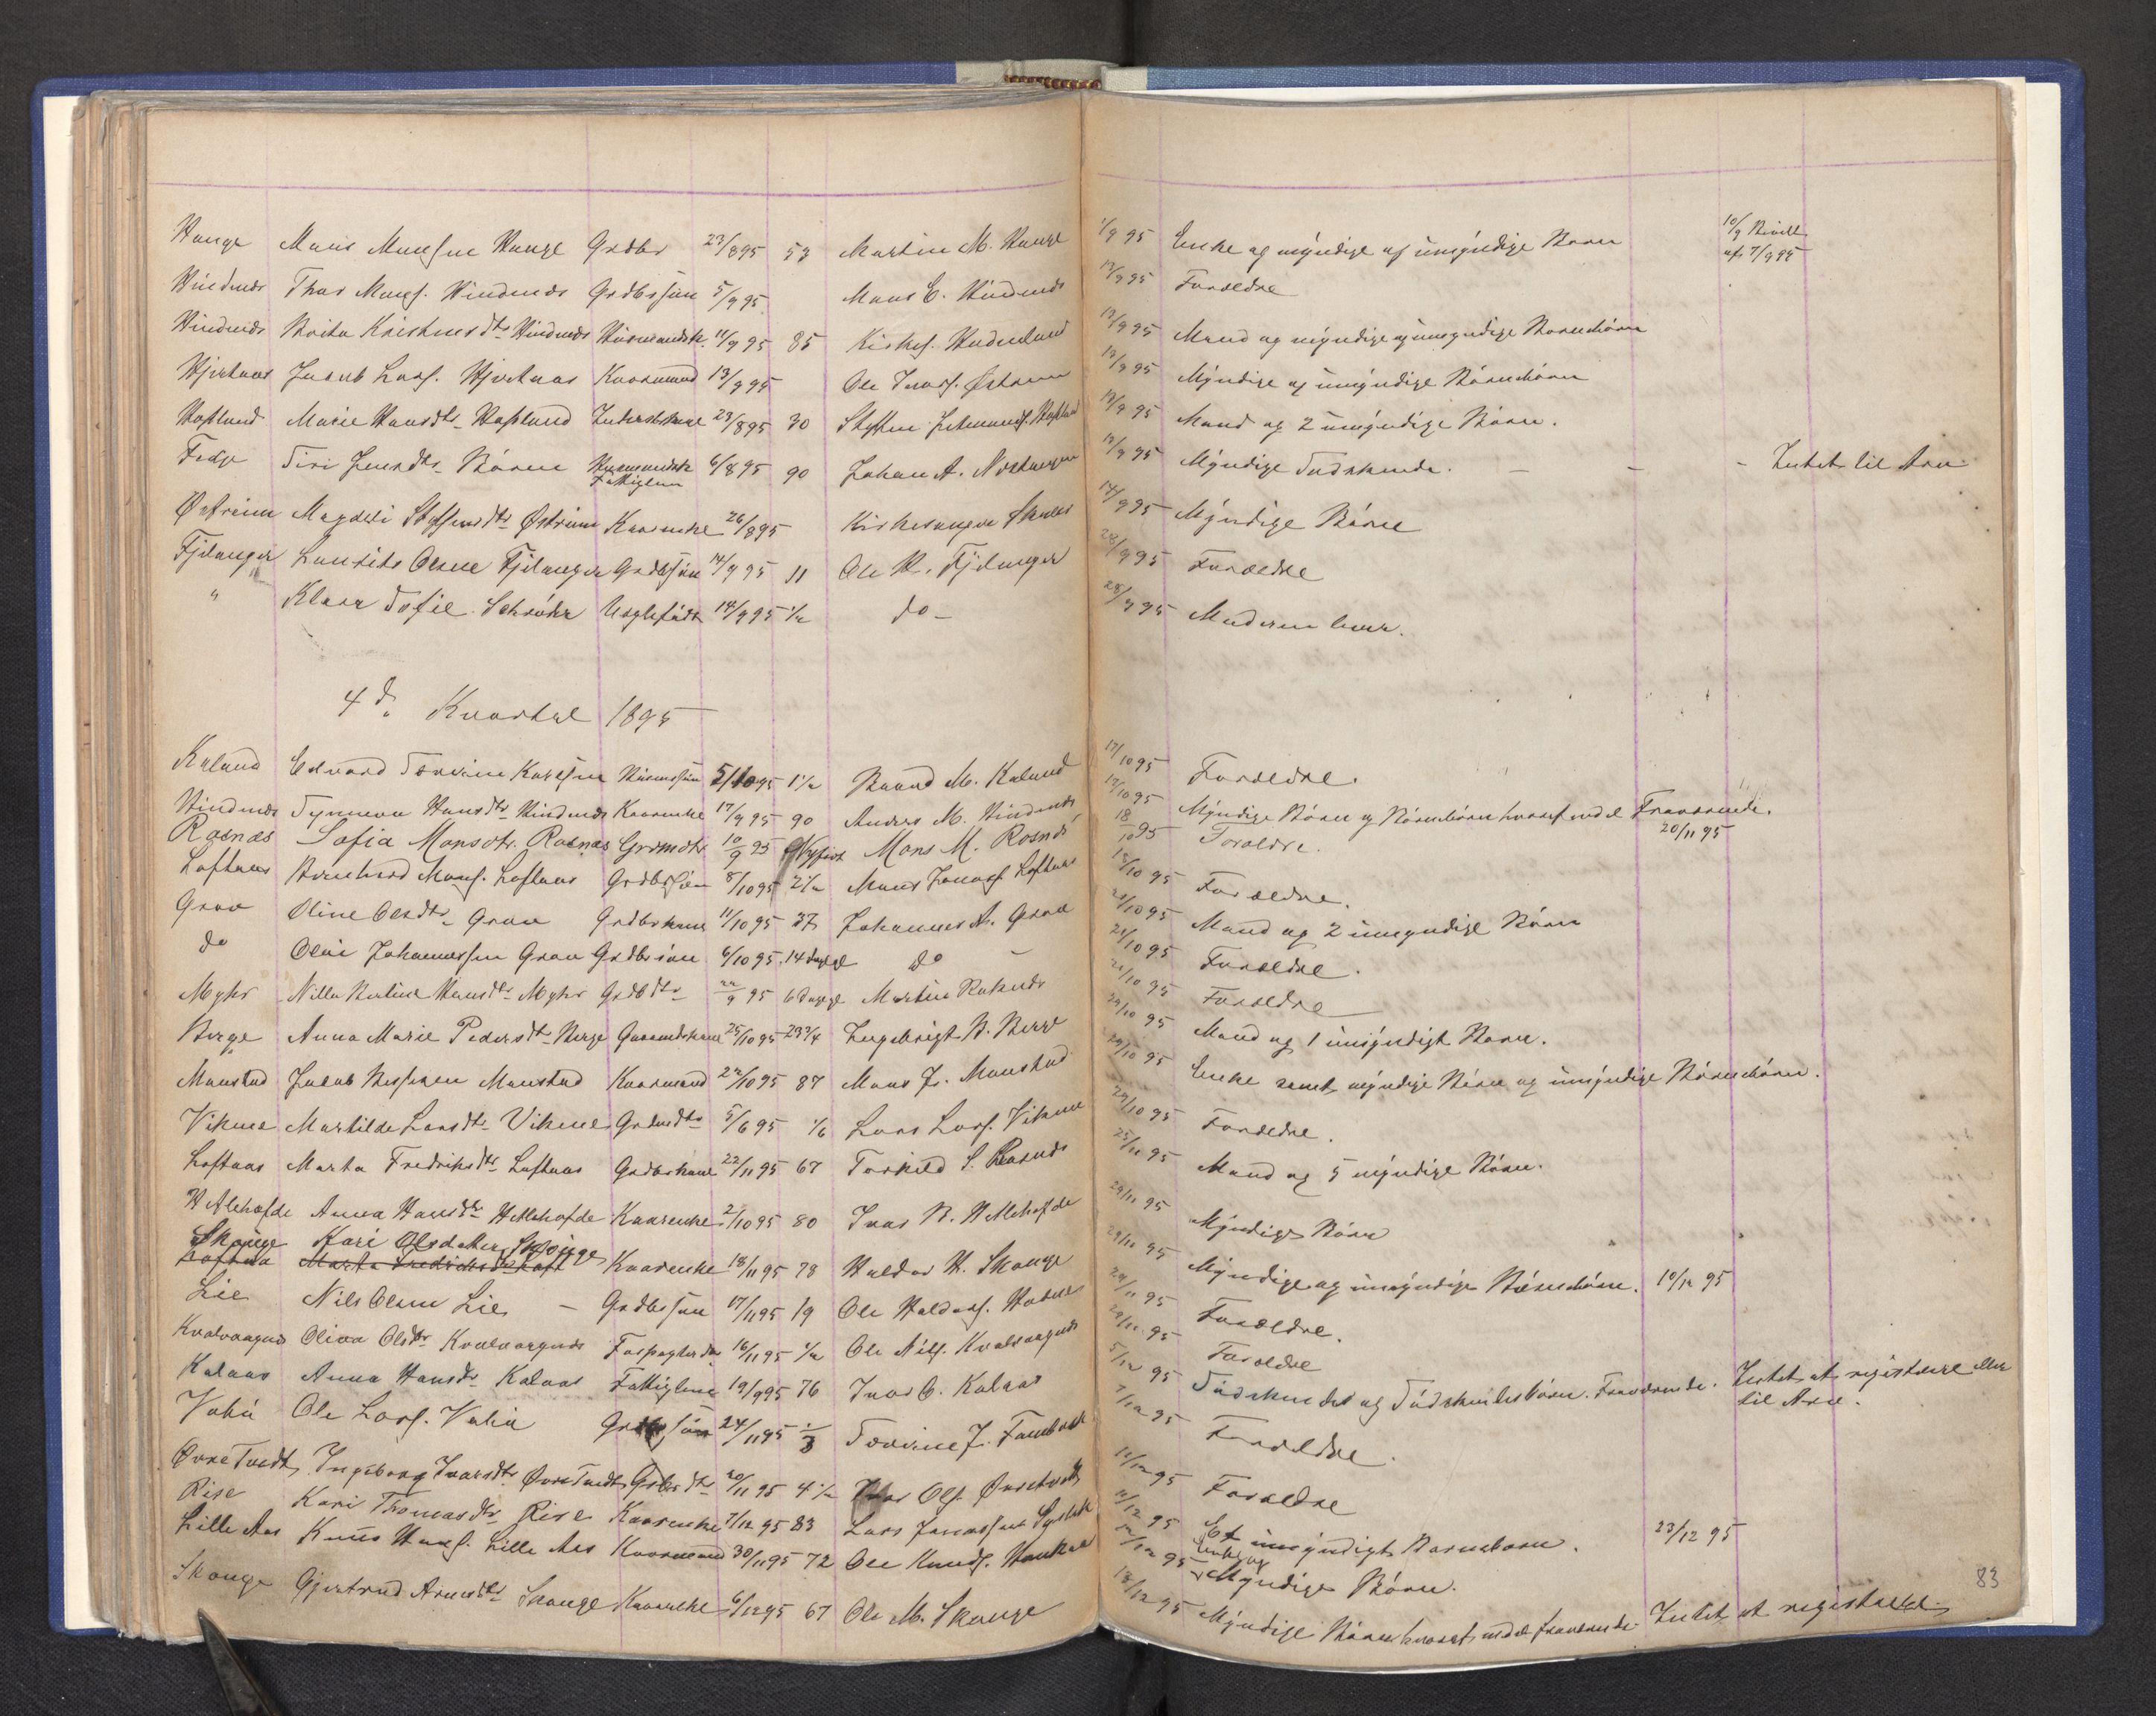 Hauge Mons Monssen Hauge Grdbr 23/8 95 53 Martin M. Hauge 1/9 95 Enke og myndige og umyndige Børn 10/9 af 7/9 95
Hindnes Thor Monss. Hindnes Grdbrsøn 5/9 95 Mons E. Hindnes 12/9 95 Forældre
Hindnes Brita Hindnes Husmandsk. 11/9 95 85 12/9 95 Mand og myndige og umyndige Børnebørn
Hjertaas Jacob Larss. Hjertaas Kaarmand 13/9 95 Ole Ivars. Østrem 13/9 95 Myndige og umyndige Børnebørn
Marie Hansdtr 23/8 95 30 Mand og 2 umyndige Børn.
Fedje Siri Jensdtr Husmandsk Fattiglem 6/8 95 90 Johan A. Myndige Sødskende. — — — Intet til Arv
Østreim Magdeli Steffensdtr Østreim Kaarenke 26/8 95 Kirkesanger 14/9 95 Myndige Børn
Fjelanger Laurits Olsen Fjelanger Grdbrsøn 14/9 95 11 Ole H. Fjelanger 28/9 95 Forældre
" Klara Sofie Schrøder Uægtefødt 14/9 95 1/2 do — 28/9 95 Moderen lever.
4d. Kvartal 1895
Kaland Edvard Severin Karlsen Husmssøn 5/10 95 1 1/2 Baard M. Kaland 17/10 95 Forældre.
Hindnes Synneva Hansdtr Hindnes Kaarenke 17/9 95 90 Anders M. Hindnes 17/10 95 Myndige Børn og Børnebørn hvoraf endel Fraværende.
Rosnæs Sofia Monsdtr. Rosnæs Grdmdtr 10/9 95 Nyfødt Mons M. Rosnæs 18/10 95 Forældre. 20/11 95
Loftaas Bernhard Monss. Loftaas Grdbrsøn 8/10 95 2 1/2 Mons Jonass. Loftaas 18/10 95 Forældre.
Grov Oline Olsdtr Grov Grdbrkone 11/10 95 37 Johannes A. Grov 21/10 95 Mand og 2 umyndige Børn
do Olai Johannessen Grov Grdbrsøn 6/10 95 14 Dage gl do — 21/10 95 Forældre.
Myhr Nilla Berline Hansdtr Myhr Grdbdtr 22/9 95 6 Dage gl Martin 21/10 95 Forældre
Berge Anna Marie Pedersdtr Berge Gaardmdskone 25/10 95 23 3/4 Ingebrigt B. Berge 29/10 95 Mand og 1 umyndigt Barn.
Monstad Jakob Monstad Kaarmand 22/10 95 87 Mons J. Monstad 29/10 95 Enke samt myndige Børn og umyndige Børnebørn.
Vikne Martilde Larsdtr Vikne Grdmdtr 5/6 95 1/6 Lars Larss. Vikne 29/10 95 Forældre.
Loftaas Marta Fredriksdtr Loftaas Grdbrkone 22/11 95 67 Torkild S. Rosnæs 25/11 95 Mand og 5 myndige Børn.
Anna Hansdtr Kaarenke 2/10 95 80 Ivar B. 29/11 95 Myndige Børn
Skauge Kari Olsdatter Skauge
Loftaas Marta Fredriksdtr Loft Kaarenke 18/11 95 78 Haldor H. Skauge 29/11 95 Myndige og umyndige Børnebørn. 10/12 95
Lie Nils Olsen Lie — Grdbrsøn 17/11 95 19 Ole Haldors. 29/11 95 Forældre.
Kvalvaagnes Oliva Olsdtr Kvalvaagnes Forpagterdtr 16/11 95 1/2 Ole Nils. Kvalvaagnes 29/11 95 Forældre
Kalaas Anna Hansdtr Kalaas Fattiglem 19/9 95 76 Ivar O. Kalaas 5/12 95 Sødskende og Sødskendesbørn. Fraværende. Intet at registrere eller til Arv.
Ole Larss. Grdbrsøn 24/11 95 1/3 Severine J. 7/12 95 Forældre.
Øvre Tvedt Ingeborg Ivarsdtr Øvre Tvedt Grdbrdtr 20/11 95 4 1/2 Ivar Ols. Øvretvedt 11/12 95 Forældre
Rise Kari Thomasdtr Rise Kaarenke 7/12 95 83 Lars Jonassen 11/12 95 Et umyndigt Barnebarn. 23/12 95
Lille Aas Knut Hans. Lille Aas Kaarmand 30/11 95 72 Ole Knuds. 12/12 95 Enke og Myndige Børn.
Skauge Gjertrud Arnesdtr Skauge Kaarenke 6/12 95 67 Ole M. Skauge 18/12 95 Myndige Børn hvoraf endel fraværende. Intet at registrere.
83